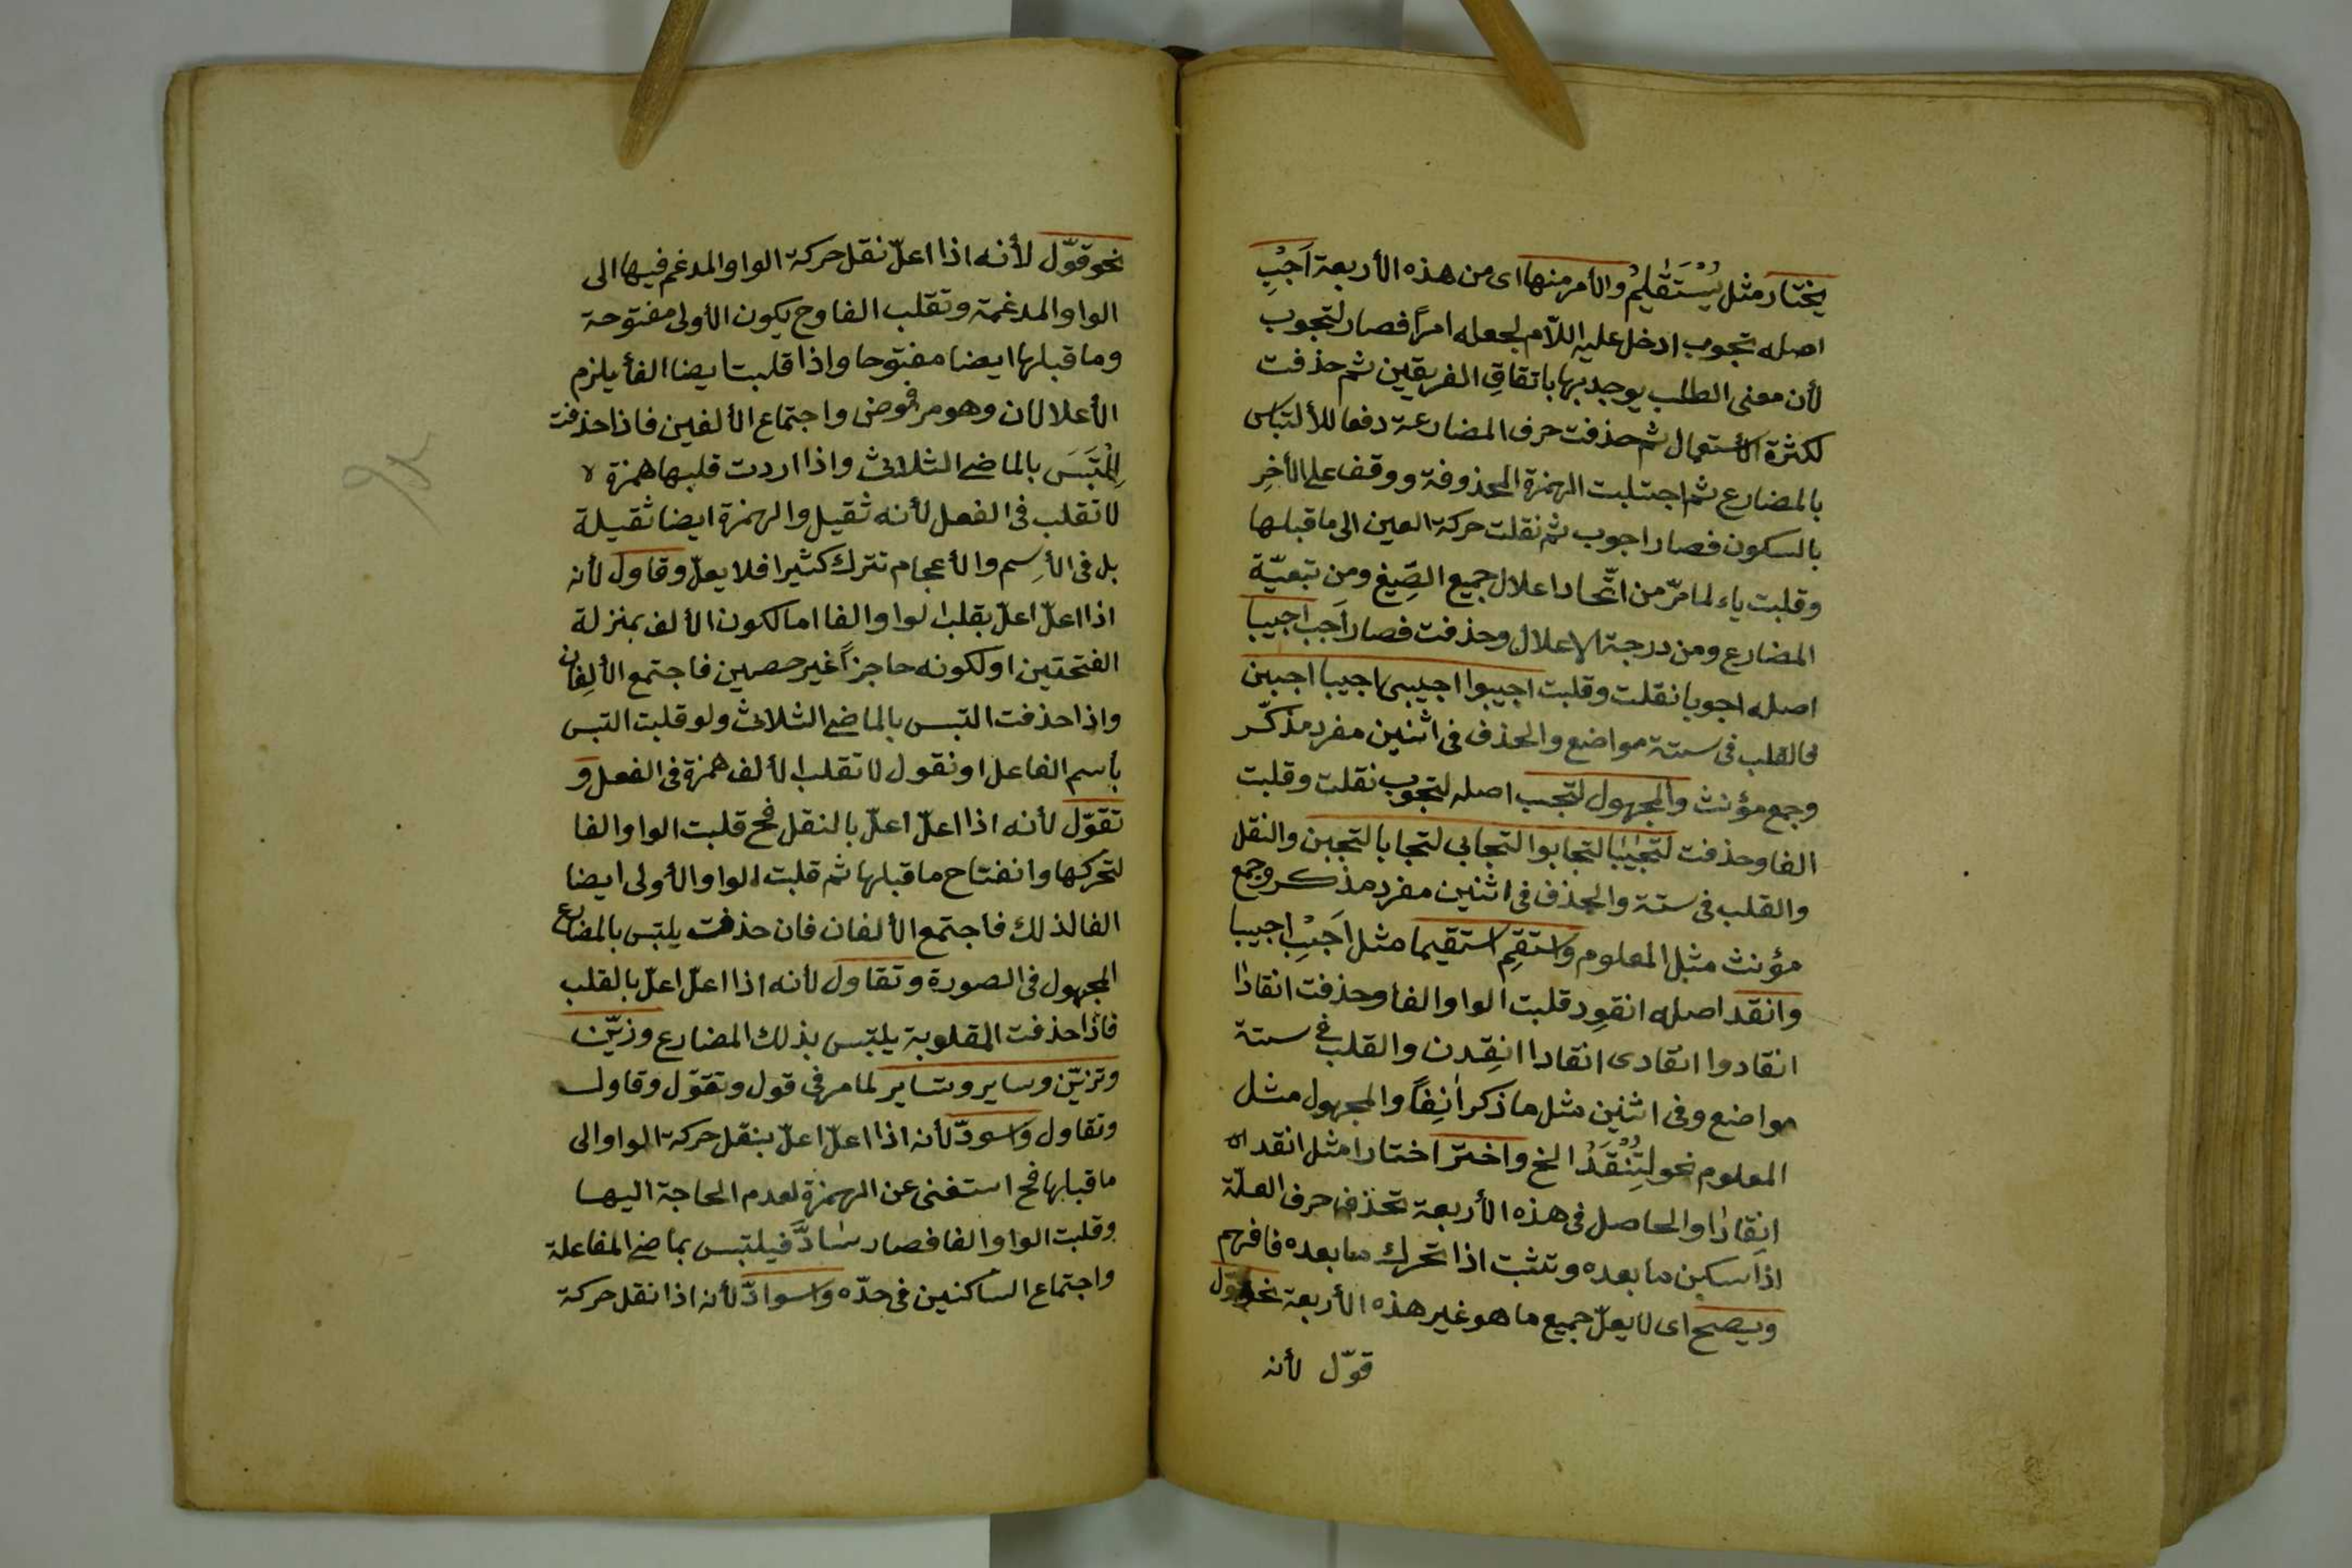 يختار مثل يُسْتَقٰيمُ والأمر منها اى من هذه الأربعة اَجِبْ
اصله تجوب ادخل عليه اللّام لجعله امراً فصار لتجوب
لأن معنى الطلب يوجد بها باتفاقِ الفريقين ثم حذفت
لكثرة الأستعمال ثم حذفت حرف المضارعة دفعا للألتباس
بالمضارع ثم اجتلبت الهمزة المحذوفة ووقف على الأخِرِ
بالسكون فصار اجوب ثم نقلت حركة العين الى ما قبلها
وقلبت ياء لما مرّ من اتّحاد اعلال جميع الصِّيغ ومن تبعيّة
المضارع ومن درجة الاعلال وحذفت فصار اَجب اجيبا
اصله اجوبا نقلت وقلبت اجيبوا اجيبى اجيبا اجبن
فالقلب فى ستة مواضع والحذف فى اثنين مفرد مذكّر
وجمع مؤنث والمجهول لتجب اصله لتجوب نقلت وقلبت
الفا وحذفت لتجابا لتجابوا لتجابى لتجابا لتجبن والنقل
والقلب فى ستة والحذف فى اثنين مفرد مذكر وجمع
مؤنث مثل المعلوم واستقِم استقيما مثل اَجِبْ اجيبا
وانقد اصله انقوِد قلبت الواو الفا وحذفت انقادٰا
انقادوا انقادى انقادا انقِدن والقلب فى ستة
مواضع وفى اثنين مثل ما ذكر اٰنِفاً والمجهول مثل
المعلوم نحو لِتُنْقَدْ الخ واختر اختارا مثل انقد
انقادٰا والحاصل فى هذه الأربعة تحذف حرف العلّة
اذا سكن ما بعده وتثبت اذا تحرك ما بعده فافهم
ويصح اى لا يعلّ جميع ما هو غير هذه الأربعة نحو قوّل
قوّل لأنه
نحو قوّل لأنه اذا اعلّ نقل حركة الواو المدغم فيها الى
الواو المدغمة وتقلب الفا وح يكون الأولى مفتوحة
وما قبلها ايضا مفتوحا واذا قلبت ايضا الفا يلزم
الأعلالان وهو مرفوض واجتماع الألفين فاذا حذفت
اِلْتَبَسَ بالماضى الثلاثى واذا اردت قلبها همزة لا
لا تقلب فى الفعل لأنه ثقيل والهمزة ايضا ثقيلة
بل فى الأسِم والأعجام تترك كثيرا فلا يعلّ وقاول لأنه
اذا اعلّ اعلّ بقلب الواو الفا اما لكون الألف بمنزلة
الفتحتين او لكونه حاجزاً غير حصين فاجتمع الألِفان
واذا حذفت التبس بالماضى الثلاثى ولو قلبت التبس
بأسم الفاعل او نقول لا تقلب الألف همزة فى الفعل و
تقوّل لأنه اذا اعلّ اعلّ بالنقل فح قلبت الواو الفا
لتحركها وانفتاح ما قبلها ثم قلبت الواو الأولى ايضا
الفا لذلك فاجتمع الألفان فان حذفت يلتبس بالمضارع
المجهول فى الصورة وتقاول لأنه اذا اعلّ اعلّ بالقلب
فاذا حذفت المقلوبة يلتبس بذلك المضارع وزيّن
وتزيّن وساير وتساير لما مر فى قول وتقوّل وقاول
وتقاول واسودّ لأنه اذا اعلّ اعلّ بنقل حركة الواو الى
ما قبلها فح استغنى عن الهمزة لعدم الحاجة اليها
وقلبت الواو الفا فصار سٰادَّ فيلتبس بماضى المفاعلة
واجتماع الساكنين فى حدّه واسوادّ لأنه اذا نقل حركة